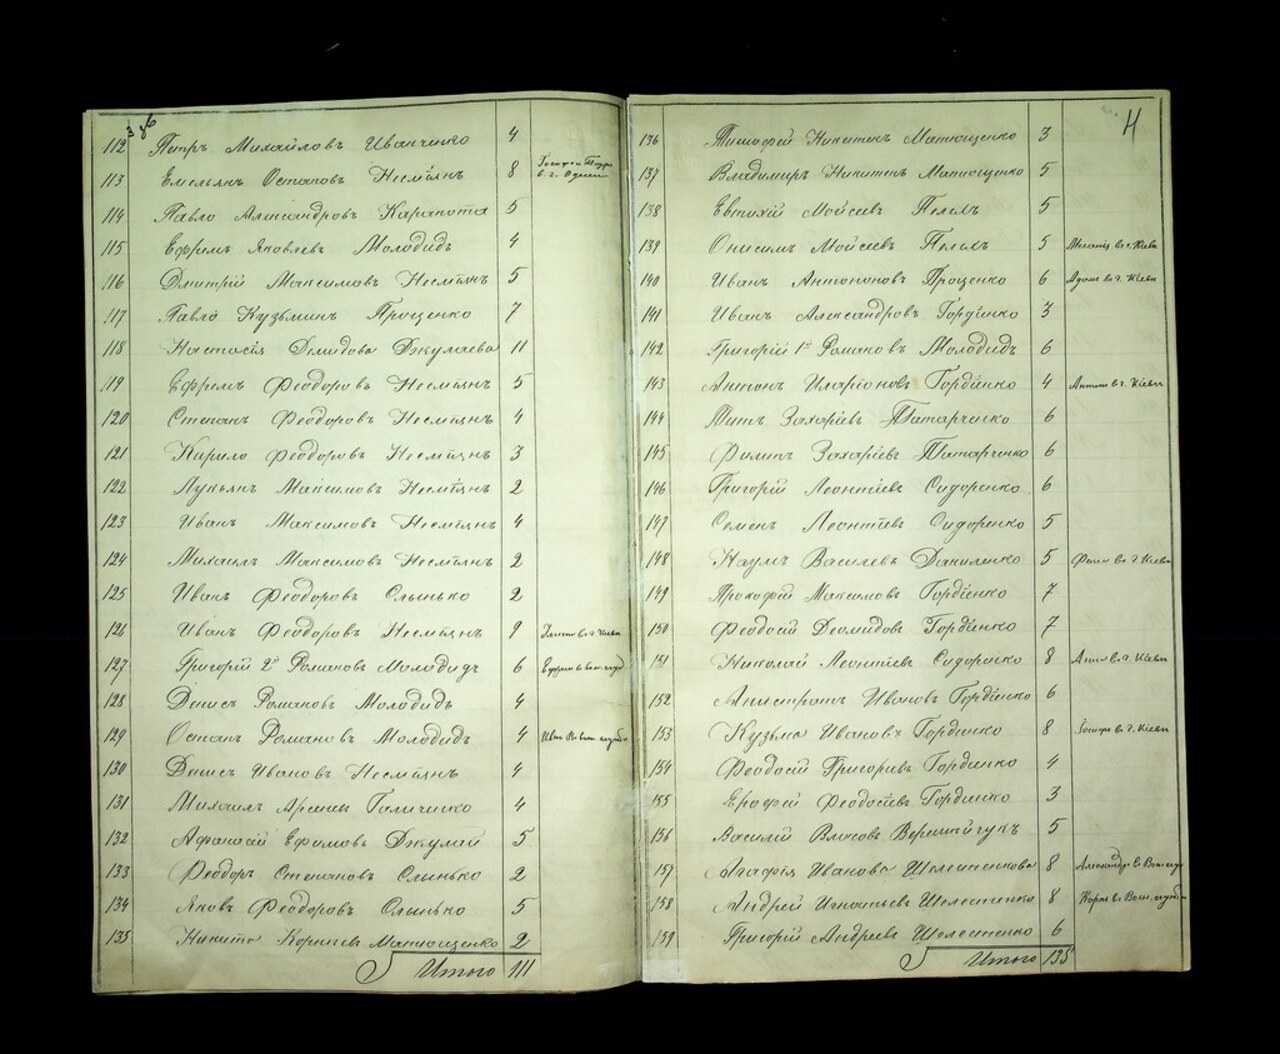 3 дв
112 Петръ Михайловъ Иванченко 4
113 Емельянъ Остаповъ Несміянъ 8 в г. Одессѣ
114 Павло Александровъ Карапота 5
115 Ефремъ Яковлевъ Молодидъ 4
116 Дмитрій Максимовъ Несміянъ 5
117 Павло Кузьминъ Проценко 7
118 Настасія Демидова Джулаева 11
119 Ефремъ Феодоровъ Несміянъ 5
120 Степанъ Феодоровъ Несміянъ 4
121 Кирило Феодоровъ Несміянъ 3
122 Лукьянъ Максимовъ Несміянъ 2
123 Иванъ Максимовъ Несміянъ 4
124 Михаилъ Максимовъ Несміянъ 2
125 Иванъ Феодоровъ Слынько 2
126 Иванъ Феодоровъ Несміянъ 9 в г. Кіевѣ
127 Григорій 2й Романовъ Молодидъ 6 Ефремъ в воен. служб
128 Денисъ Романовъ Молодидъ 4
129 Остапъ Романовъ Молодидъ 4 Иванъ въ воен. службѣ
130 Денисъ Ивановъ Несміянъ 4
131 Михаилъ Арсеньевъ Галиченко 4
132 Афанасій Ефимовъ Джулай 5
133 Феодоръ Степановъ Слынько 2
134 Яковъ Феодоровъ Слынько 5
135 Никита Корнѣевъ Матющенко 2
Итого 111
4
136 Тимофей Никитинъ Матющенко 3
137 Владимиръ Никитинъ Матющенко 5
138 Евтихій Мойсеевъ Пельхъ 5
139 Онисимъ Мойсеевъ Пельхъ 5 в г. Кіевѣ
140 Иванъ Антоновъ Проценко 6 в г. Кіевѣ
141 Иванъ Александровъ Гордіенко 3
142 Григорій 1й Романовъ Молодидъ 6
143 Антонъ Иларіоновъ Гордіенко 4 Антонъ в г. Кіевѣ
144 Титъ Захаріевъ Татарченко 6
145 Филипъ Захаріевъ Татарченко 6
146 Григорій Леонтіевъ Сидоренко 6
147 Семенъ Леонтіевъ Сидоренко 5
148 Наумъ Василевъ Даниленко 5 в г. Кіевѣ
149 Прокофій Максимовъ Гордіенко 7
150 Феодосій Деомидовъ Гордіенко 7
151 Николай Леонтіевъ Сидоренко 8 в г. Кіевѣ
152 Калистратъ Ивановъ Гордіенко 6
153 Кузьма Ивановъ Гордіенко 8 в г. Кіевѣ
154 Феодосій Григорьевъ Гордіенко 4
155 Ерофей Феодосіевъ Гордіенко 3
156 Василій Власовъ Веремійчукъ 5
157 Агафія Иванова Шелестенкова 8 Александръ въ воен. служ
158 Андрей Игнатьевъ Шелестенко 8 въ воен. службѣ
159 Григорій Андреевъ Шелестенко 6
Итого 135